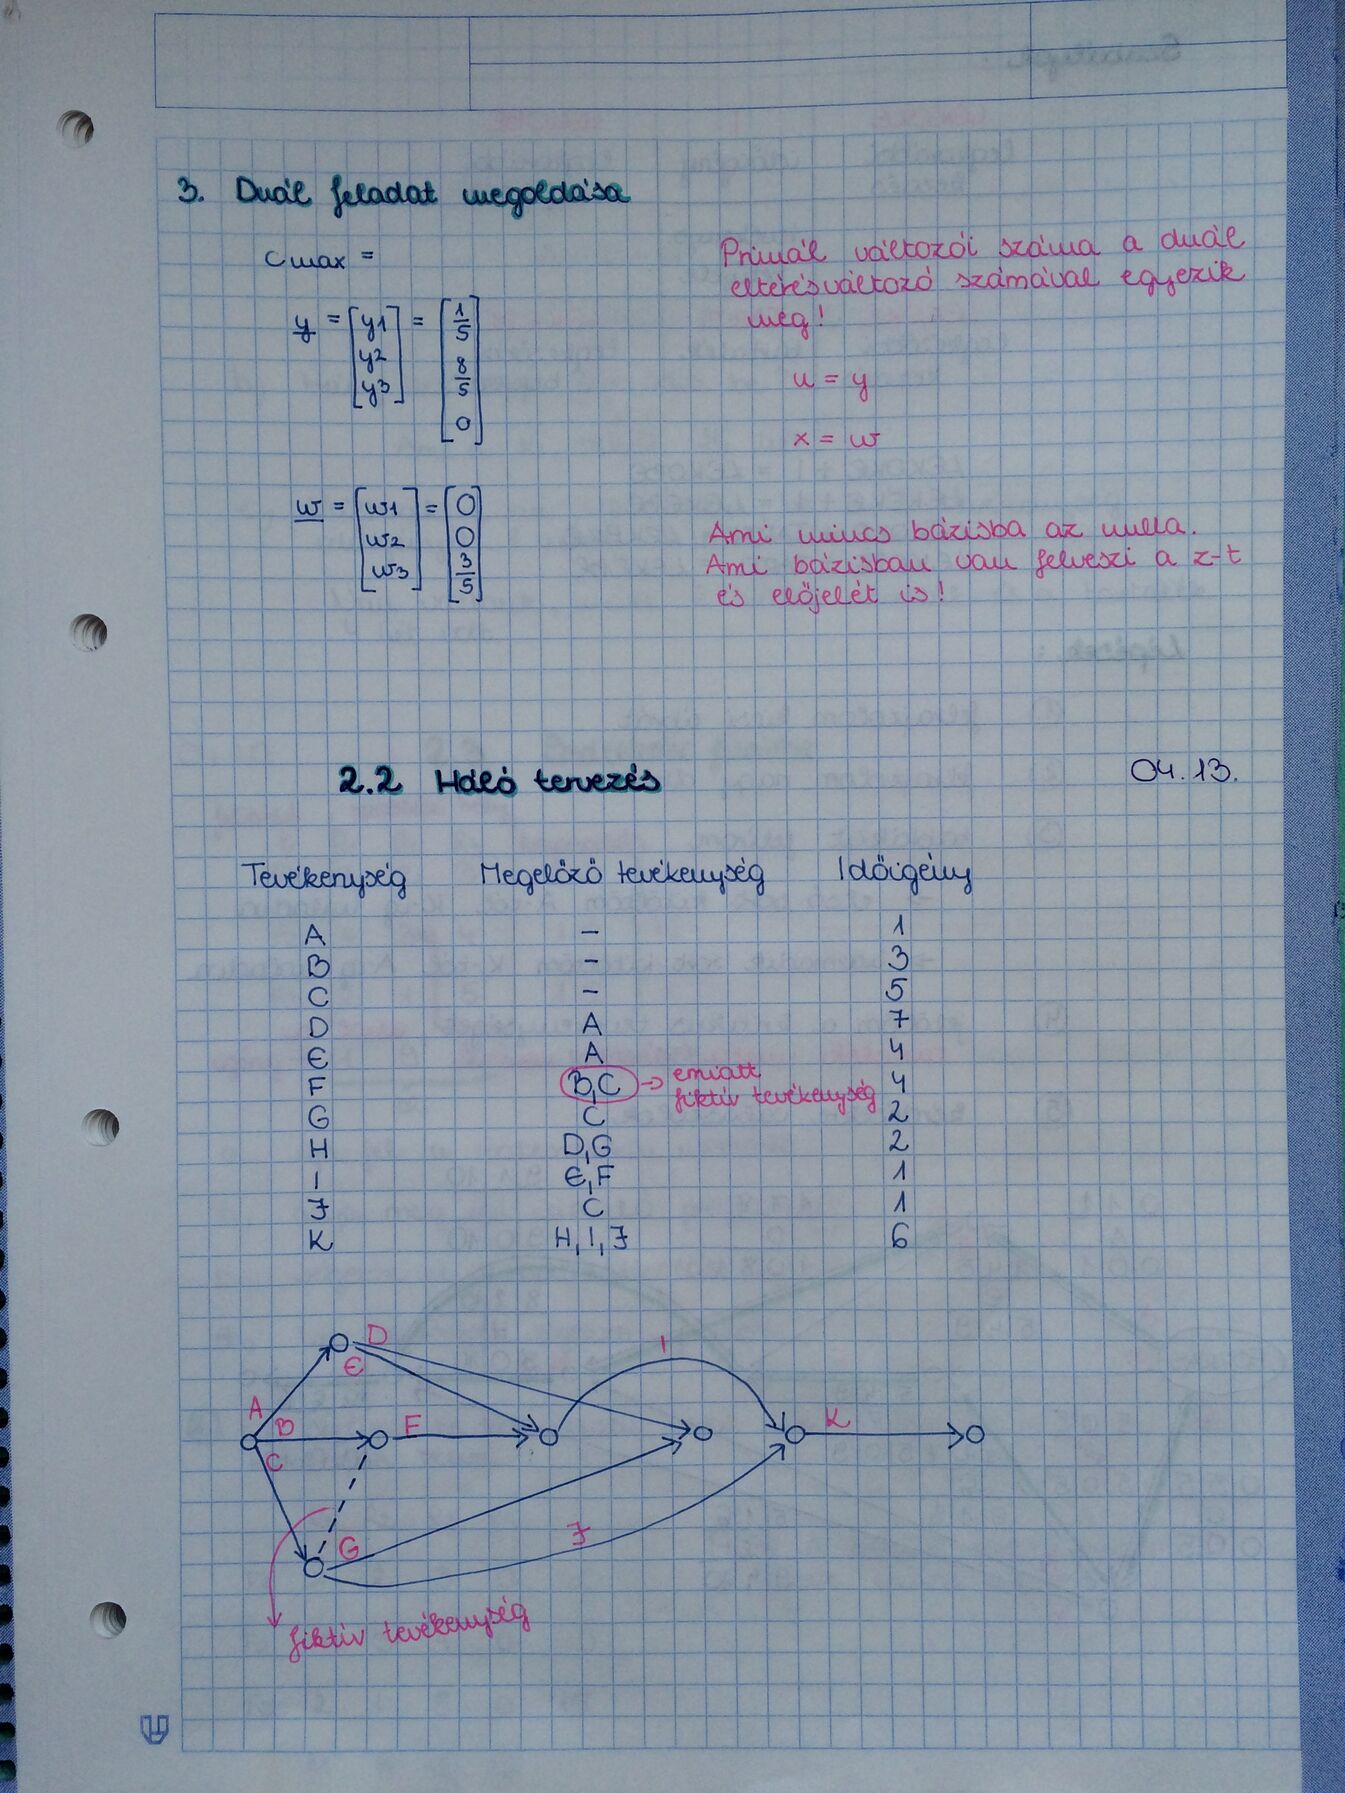 3. Duál feladat megoldása
cmax =
y = [y1 y2 y3] = [1/5 8/5 0]
w = [w1 w2 w3] = [0 0 3/5]
Primál változói száma a duál
eltérésváltozó számával egyezik
meg!
u = y
x = w
Ami nincs bázisba az nulla.
Ami bázisban van felveszi a z-t
és előjelét is!
2.2 Háló tervezés 04.13.
Tevékenység Megelőző tevékenység Időigény
A - 1
B - 3
C - 5
D A 7
E A 4
F B,C → emiatt fiktív tevékenység 4
G C 2
H D,G 2
I E,F 1
J C 1
K H,I,J 6
D
I
E
A
B
F
K
C
G
J
fiktív tevékenység